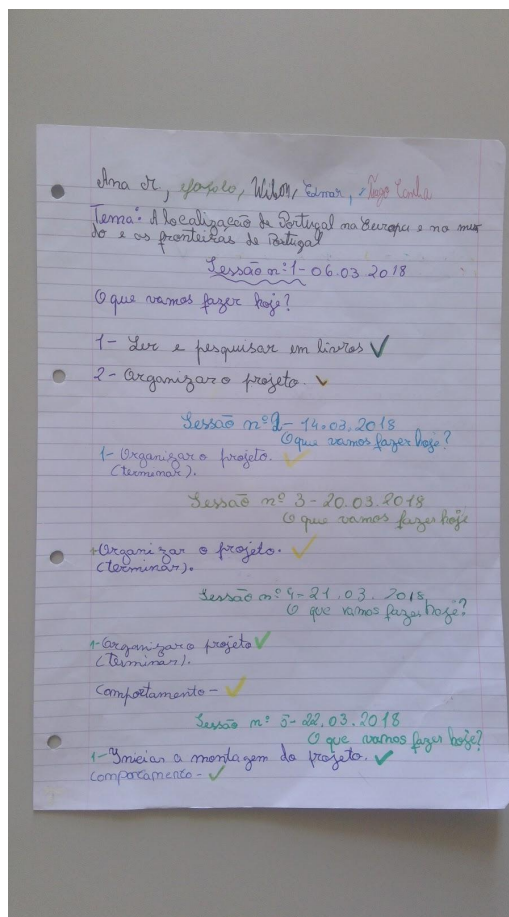 Ana M., , Wilson, Edmar, Tiago Cunha
Tema: A localização de Portugal na Europa e no mun
do e as fronteiras de Portugal
Sessão nº1- 06.03.2018
O que vamos fazer hoje?
1- Ler e pesquisar em livros ✓
2- Organizar o projeto. ✓
Sessão nº2- 14.03.2018
O que vamos fazer hoje?
1- Organizar o projeto. ✓
(terminar).
Sessão nº 3-20.03.2018
O que vamos fazer hoje
1-Organizar o projeto. ✓
(terminar).
Sessão nº4-21.03.2018
O que vamos fazer hoje?
1-Organizar o projeto ✓
(terminar).
Comportamento- ✓
Sessão nº 5-22.03.2018
O que vamos fazer hoje?
1-Iniciar a montagem do projeto. ✓
comportamento- ✓